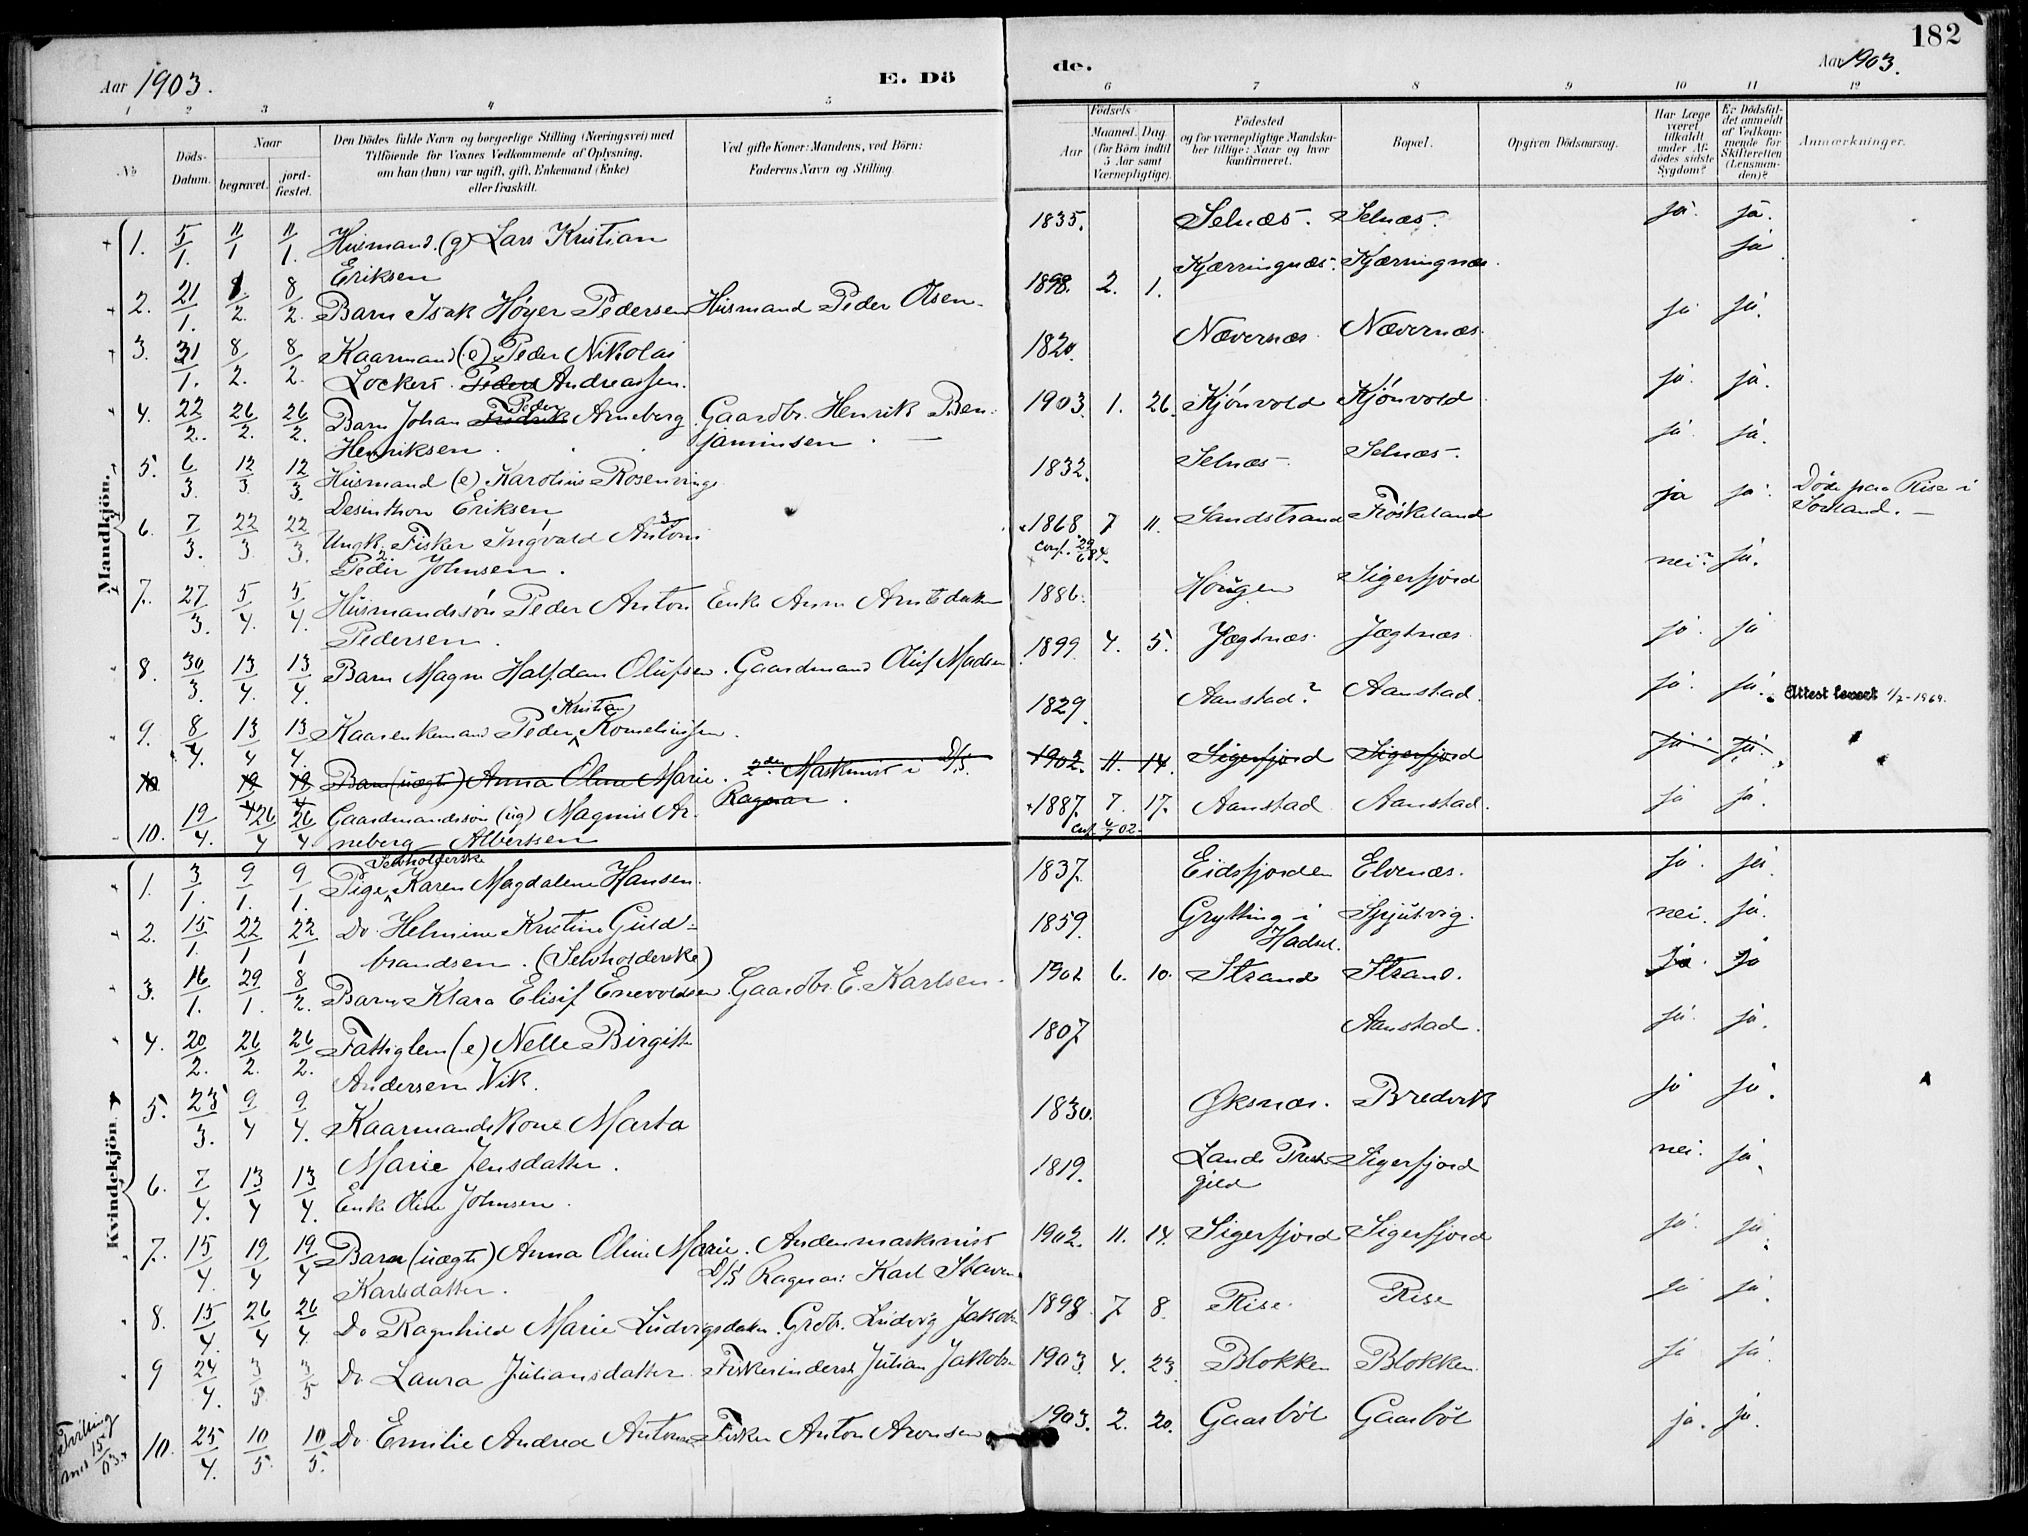 182
Aar 1903.
E. Dö
de.
Aar 1903.
1 2 3 4 5 6 7 8 9 10 11 12
№
Döds-
Datum.
Naar
begravet.
jord-
fæstet.
Den Dödes fulde Navn og borgerlige Stilling (Næringsvei) med
Tilföiende for Voxnes Vedkommende af Oplysning,
om han (hun) var ugift, gift, Enkemand (Enke)
eller fraskilt.
Ved gifte Koner: Mandens, ved Börn:
Faderens Navn og Stilling.
Födsels
Aar
Maaned.
Dag.
(for Börn indtil
5 Aar samt
Værnepligtige).
Födested
og for værnepligtige Mandska-
ber tillige: Naar og hvor
konfirmeret.
Bopæl.
Opgiven Dödsaarsag.
Har Læge
været
tilkaldt
under Af-
dödes sidste
Sygdom?
Er Dödsfal-
det anmeldt
af Vedkom-
mende for
Skifteretten
(Lensman-
den)?
Anmærkninger.
Mandkjön.
1. 5/1. 11/1 11/1. Husmand (g) Lars Kristian 1835. Selnæs. Selnæs. ja. ja.
Eriksen
2. 21/1. 8/2. 8/2. Barn Isak Høyer Pedersen Husmand Peder Olsen. 1898. 2. 1. Kjærringnæs. Kjærringnæs. ja
3. 31/1. 8/2. 8/2. Kaarmand (e) Peder Nikolai 1820. Nævernæs Nævernæs. ja ja.
Lockert. Peder Andreassen.
4. 22/2. 26/2. 26/2. Barn Johan Fredrik Peder Arneberg Gaardbr. Henrik Ben- 1903. 1. 26. Kjönvold Kjönvold ja. ja.
Henriksen. jaminsen.
5. 6/3. 12/3 12/3. Husmand (e) Karolius Rosenving 1832. Selnæs. Selnæs. ja. ja.
Desinthon Eriksen
6. 7/3. 22/3. 22/3. Ungk. Fisker Ingvald Anton 3 1868 7 11. Sandstrand Frøskeland ja ja. Døde paa Rise i
Peder 2 Johnsen. Conf. 29/6 84. Sortland.
7. 27/3. 5/4. 5/4. Husmandssøn Peder Anton Enke Anne Arntsdatter 1886. Hougen Sigerfjord nei? ja.
Pedersen.
8. 30/3. 13/4. 13/4. Barn Magne Halfdan Olufsen. Gaardmand Oluf Madsen 1899. 4. 5. Jægtnæs. Jægtnæs ja. ja
9. 8/4. 13/4 13/4. Kaarenkemand Peder Kristian Korneliussen. 1829. Aanstad? Aanstad. ja. ja. Attest levert 1/7-1964.
10 19/4 19/4 Barn (uægte) Anna Oline Marie. 2den Maskinist i D/S. 1902. 11. 14. Sigerfjord Sigerfjord ja ja.
Ragnar.
10. 19/4. 26/4 26/4. Gaardmandssøn (ug) Magnus Ar- 1887. 7. 17. Aanstad Aanstad. ja ja.
neberg Albertsen
Kvindekjön.
1. 3/1. 9/1. 9/1. Pige Selvholderske Karen Magdalena Hansen. 1837. Eidsfjorden Elvenæs. ja. ja.
2. 15/1. 22/1 22/1 Do. Helmine Kristine Guld- 1859. Grytting i Spjutvig. nei. ja.
brandsen. (Selvholderske) Hadsel.
3. 16/1. 29/1. 8/2. Barn Klara Elisif Enevoldsen Gaardbr. E. Karlsen. 1902 6. 10. Strand Strand. ja. ja
4. 20/2. 26/2. 26/2. Fattiglem (e) Nelle Birgitte 1807 Aanstad. ja. ja.
Andersen Vik.
5. 23/3. 9/4 9/4. Kaarmandskone Marta 1830. Øksnæs. Bredvik ja ja.
Marie Jensdatter.
6. 7/4. 13/4 13/4. Enke Oline Johnsen. 1819. Lands Præste- Sigerfjord nei. ja.
gjeld
7. 15/4. 19/4 19/4 Barn (uægte) Anna Oline Marie. Andenmaskinist 1902. 11. 14. Sigerfjord Sigerfjord ja. ja.
Karlsdatter. D/S Ragnar: Karl
8. 15/4. 26/4 26/4 Do Ragnhild Marie Ludvigsdatter. Grdbr. Ludvig Jakobs 1898. 7. 8. Rise. Rise ja ja.
9 24/4. 3/5 3/5 Do. Laura Juliansdatter Julian Jakobsen 1903. 4. 23. Blokken Blokken. ja ja.
Tvilling
10. 25/4. 10/5. 10/5. Do. Emilie Andrea Fisker Anton Aronsen 1903. 2. 20. Gaasböl Gaasböl ja. ja.